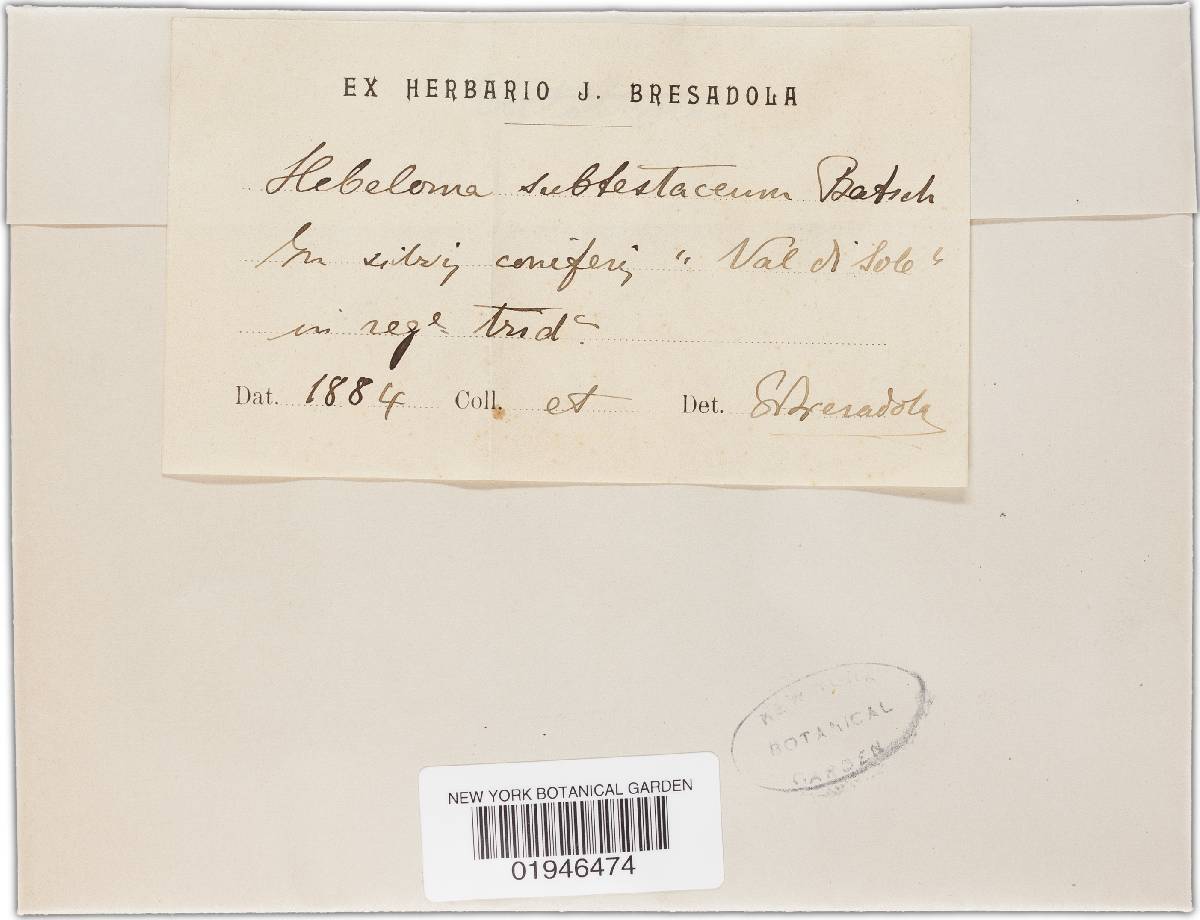 EX HERBARIO J. BRESADOLA
Hebeloma subtestaceum Batsch
In silvis coniferis "Val di Sole"
in rege trid.
Dat. 1884 Coll. et Det. Bresadola
NEW YORK
BOTANICAL
GARDEN
NEW YORK BOTANICAL GARDEN
01946474